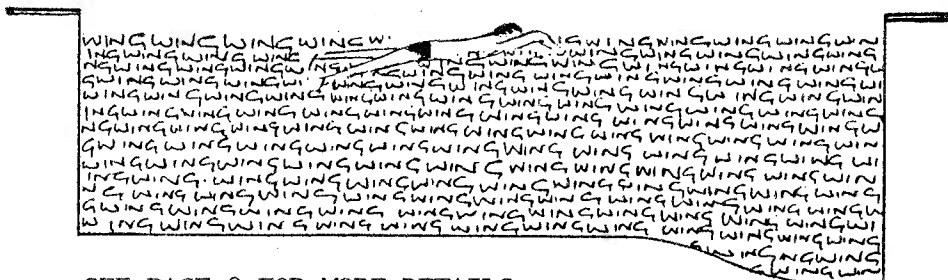 WINGWINGWINGWINGW IGWINGNINGWINGWINGWIN
INGWINGWINGWING WINGWINGWINGWINGWING
NGWINGWINGWINGWING WINGWINGWINGWINGWINGW
GWINGWINGWING WINGWINGWINGWINGWINGW INGWING
WINGWINGWINGWING WINGWINGWINGWINGWINGW INGWINGWIN
INGWINGWINGWINGWINGWINGWINGWINGWINGWINGWINGWIN
NGWINGWINGWINGWINGWINGWINGWINGWINGWINGWINGWINGWIN
GWING WINGWINGWINGWINGWINGWINGWING WINGWINGWINGWING
WINGWINGWINGWINGWINGWINGWINGWINGWINGWINGWINGWINGWI
INGWING WINGWINGWINGWINGWINGWINGWINGWINGWINGWINGWIN
NG WINGWINGWINGWINGWINGWINGWINGWINGWINGWINGWINGWIN
GWINGWINGWINGWINGWING WINGWINGWINGWINGWINGWINGWING
WINGWINGWINGWING WING WINGWINGWINGWINGWINGWINGWING
WINGWINGWIN
GWINGWIN
SEE PAGE FOR MORE DETAILS